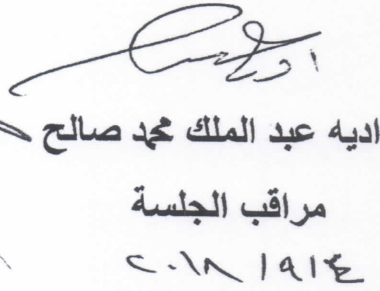 اديه عبد الملك محمد صالح
مراقب الجلسة
٢٠١٨/٩/٤